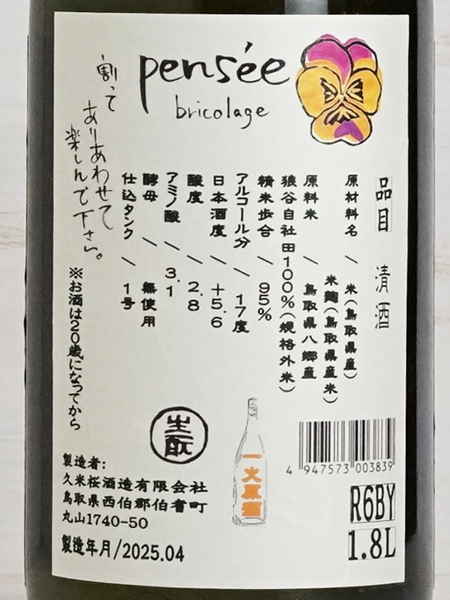 pensée
bricolage
割って
ありあわせて
楽しんで下さい。
品目 清酒
原材料名／米(鳥取県産)
米麹(鳥取県産米)
原料米／鳥取県八郷産
狼谷自社田100%(規格外米)
精米歩合／95%
アルコール分／17度
日本酒度／+5.6
酸度／2.8
アミノ酸／3.1
酵母／無使用
仕込タンク／1号
※お酒は20歳になってから
生酛
一火原酒
4 947573 003839
R6BY
1.8L
製造者:
久米桜酒造有限会社
鳥取県西伯郡伯耆町
丸山1740-50
製造年月/2025.04